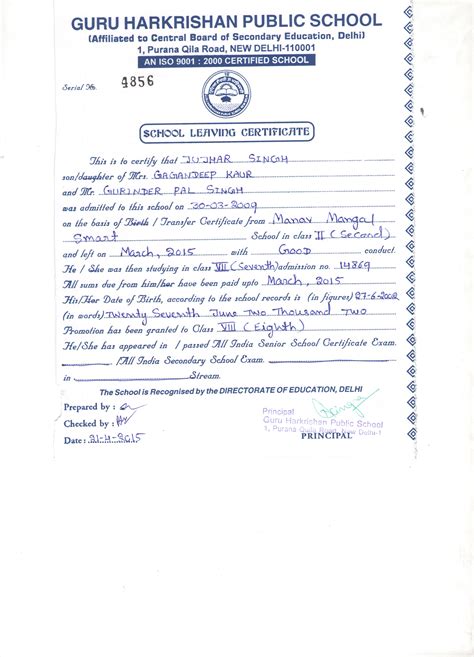 GURU HARKRISHAN PUBLIC SCHOOL
(Affiliated to Central Board of Secondary Education, Delhi)
1, Purana Qila Road, NEW DELHI-110001
AN ISO 9001 : 2000 CERTIFIED SCHOOL
Serial No. 4856
SCHOOL LEAVING CERTIFICATE
This is to certify that JUJHAR SINGH
son/daughter of Mrs. GAGANDEEP KAUR
and Mr. GURINDER PAL SINGH
was admitted to this school on 30-03-2009
on the basis of Birth / Transfer Certificate from Manav Mangal
Smart School in class II (Second)
and left on March, 2015 with GOOD conduct.
He / She was then studying in class VII (Seventh) admission no. 14869
All sums due from him/her have been paid upto March, 2015
His/Her Date of Birth, according to the school records is (in figures) 27-6-2002
(in words) Twenty Seventh June Two Thousand Two
Promotion has been granted to Class VIII (Eighth)
He/She has appeared in / passed All India Senior School Certificate Exam.
/All India Secondary School Exam.
in Stream.
The School is Recognised by the DIRECTORATE OF EDUCATION, DELHI
Prepared by :
Checked by :
Date : 21-4-2015
Principal
Guru Harkrishan Public School
1, Purana Qila Road, New Delhi-1
PRINCIPAL